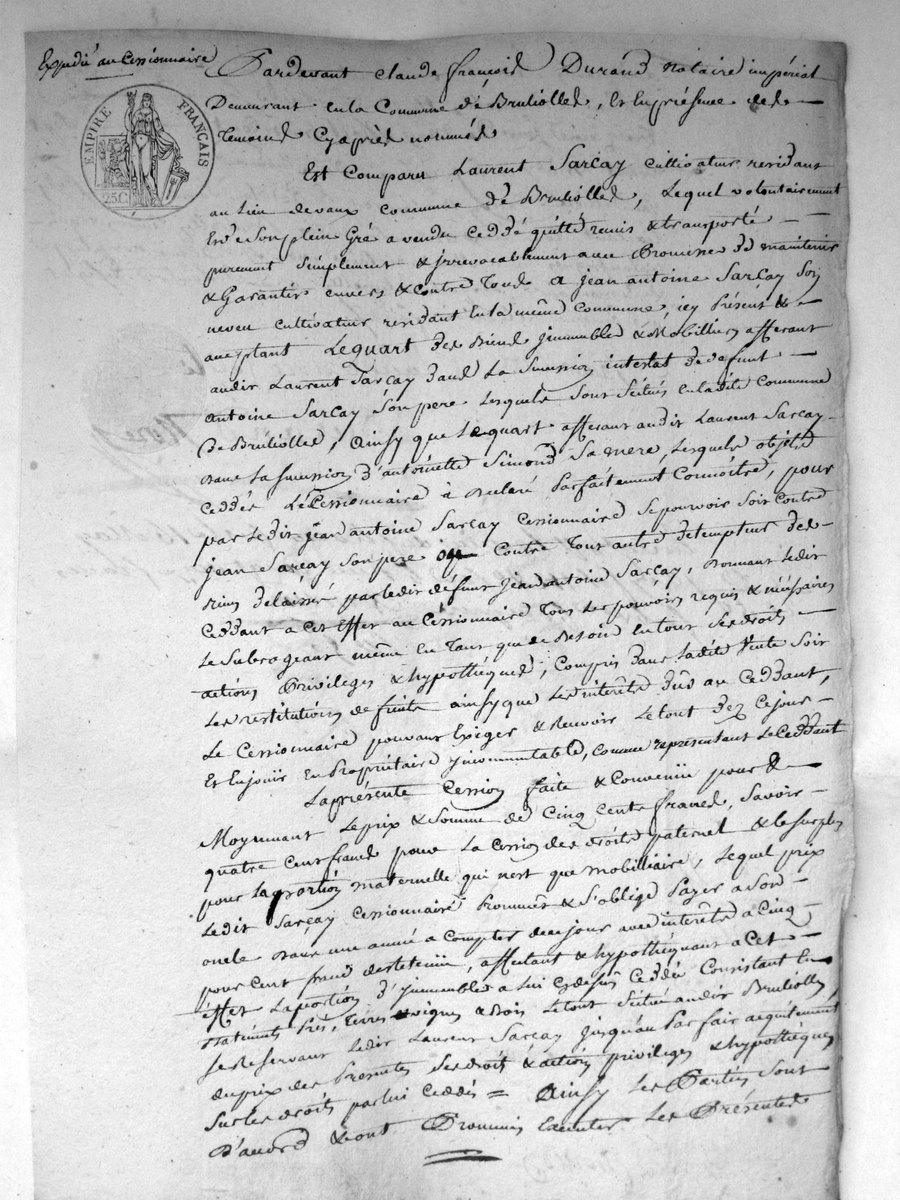 Expedié au Cessionnaire
EMPIRE FRANÇAIS
25C
Pardevant Claude françois Durand Notaire impérial
Demeurant en la Commune de Brulliolles, Et En présence des
Temoins Cyaprès nommés
Est Comparu Laurent Sarcay Cultivateur residant
au lieu de vaux Commune de Brulliolles, Lequel volontairement
Et de Son plein Gré a vendu Ceddé quitté remis & transporté
purement Simplement & jrrevocablement avec Promesse de maintenir
& Garantir envers & Contre Tous a jean antoine Sarcay Son
neveu Cultivateur residant En la même Commune, icy Présent &
acceptant Le quart des Biens jmmeubles & Mobilliers afferant
audit Laurent Sarcay Dans La Succession intestat de defunt
antoine Sarcay Son pere Lesquels Sont Situés en ladite Commune
De Brulliolles, Ainsy que Le quart afferant audit Laurent Sarcay
Dans La Succession D'antoinette Simond Sa mere, Lesquels objets
Ceddés Le Cessionnaire à Declaré Parfaitement Connoitre, pour
par Ledit jean antoine Sarcay Cessionnaire Se pouvoir Soit Contre
jean Sarcay Son pere Contre Tout autre Detempteur des
Biens Délaissés par Ledit défunt jean antoine Sarcay, Donnant Ledit
Ceddant a Cet Effet au Cessionnaire Tous Les pouvoirs requis & nécéssaires
Le Subrogeant même En Tant que de Besoin En tout Ses droits
actions Privileges & hypothéques, Compris Dans Ladite Vente Soit
Les restitutions de fruits ainsy que Les interêts Dûs au Ceddant,
Le Cessionnaire pouvant Exiger & Recevoir Le tout Dez Ce jour
Et En jouir En Propriétaire jncommutable, Comme représentant Le Ceddant
La présente Cession faite & Convenüe pour &
Moyennant Le prix & Somme de Cinq Cents francs, Savoir
quatre Cent francs pour La Cession des droits paternel & le Surplus
pour La portion maternelle qui nest que mobilliaire, Lequel prix
Ledit Sarcay Cessionnaire Prommet & S'oblige Payer a Son
oncle Dans une année a Compter de ce jour avec interêts a Cinq
pour Cent francs de retenüe, affectant & hypothéquant a Cet
éffet La portion D'jmmeubles a Lui Cydessus Ceddée Consistant En
Batiments Prés, Terres vignes & Bois Le tout Situé audit Brulliolles,
Se Réservant Ledit Laurent Sarcay jusqu'au Parfait acquittement
du prix des Presentes Ses droit & action privileges & hypothéques
Sur Les droits par Lui Ceddés = Ainsy Les Parties Sont
D'accord & ont Prommis Executer Les Présentes